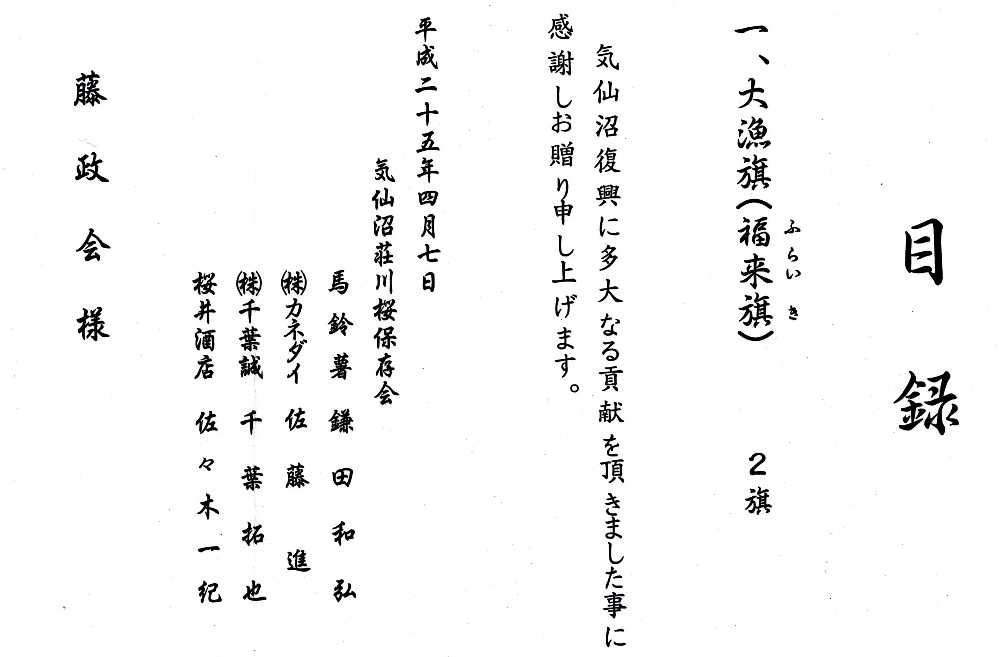 目録
一、大漁旗(福来旗) 2旗
ふらいき
気仙沼復興に多大なる貢献を頂きました事に
感謝しお贈り申し上げます。
平成二十五年四月七日
気仙沼荘川桜保存会
馬鈴薯 鎌田和弘
㈱カネダイ 佐藤進
㈱千葉誠 千葉拓也
桜井酒店 佐々木一紀
藤政会様